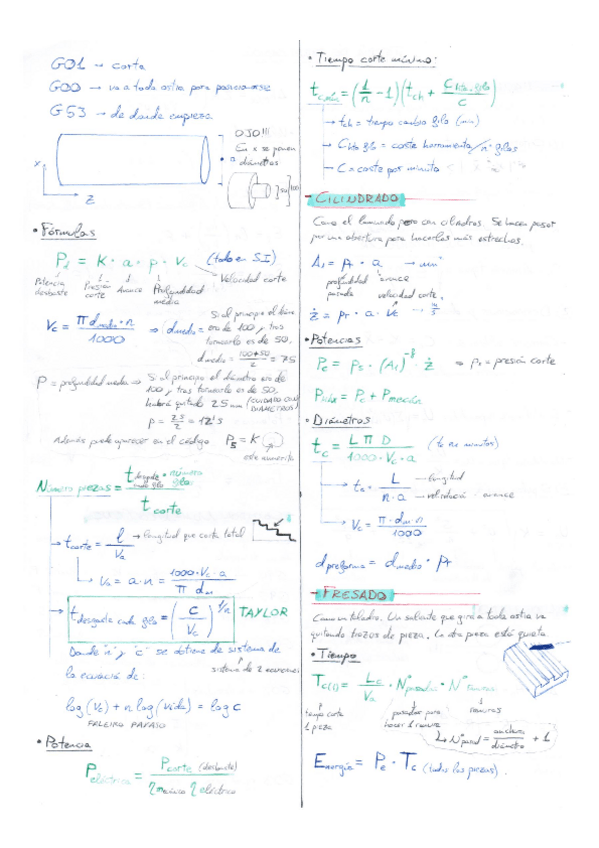 G01 → corta
G00 → va a toda ostia para posicionarse
G53 → de donde empieza
OJO!!!
En x se ponen
diámetros
X
Z
50 100
• Fórmulas
Pd = K · a · p · Vc (todo en S.I)
Potencia desbaste
Presión corte
Avance
Profundidad media
Velocidad corte
Vc = π dmedio · n / 1000 ⇒ dmedio =
Si al principio el diám.
era de 100 y tras
tornearlo es de 50,
dmedio = 100+50 / 2 = 75
P = profundidad media ⇒ Si al principio el diámetro era de
100 y tras tornearlo es de 50,
habrá quitado 25 mm (CUIDADO CON DIAMETROS)
p = 25 / 2 = 12'5
Además puede aparecer en el código Ps = K
este numerito
Número piezas = t desgaste cada filo · número filos / t corte
→ tcorte = l / Va → longitud que corta total
→ Va = a · n = 1000 · Vc · a / π dm
→ t desgaste cada filo = (C / Vc)^1/n TAYLOR
Donde "n" y "c" se obtiene de sistema de
la ecuación de: sistema de 2 ecuaciones
log (Vc) + n log (vida) = log C
FALEIRO PAYASO
• Potencia
Peléctrica = Pcorte (desbaste) / η mecánico η eléctrico
• Tiempo corte mínimo:
tc,min = (1/n - 1)(tch + Chta, filo / C)
→ tch = tiempo cambio filo (min)
→ Chta filo = coste herramienta / nº filos
→ C = coste por minuto
- CILINDRADO
Como el laminado pero con cilindros. Se hacen pasar
por una abertura para hacerlos más estrechos.
A1 = Pt · a → mm²
profundidad pasada
avance
velocidad corte.
ż = pt · a · Vc
• Potencias
Pc = ps · (A1) · ż ⇒ ps = presión corte
Pc + Pmación
• Diámetros
tc = L π D / 1000 · Vc · a (tc en minutos)
→ tc = L / n · a
→ longitud
avance
→ Vc = π · dm · n / 1000
dpreforma = dmedio · Pt
- FRESADO
Como un taladro. Un saliente que gira a toda ostia va
quitando trozos de pieza. La otra pieza está quieta
• Tiempo
Tc(1) = Lc / Va · Nºpasadas · Nº ranuras
tiempo corte 1 pieza
pasadas para hacer 1 ranura
ranuras
↳ Nºpasad = anchura / diámetro + 1
Energía = Pe · Tc (todas las piezas).